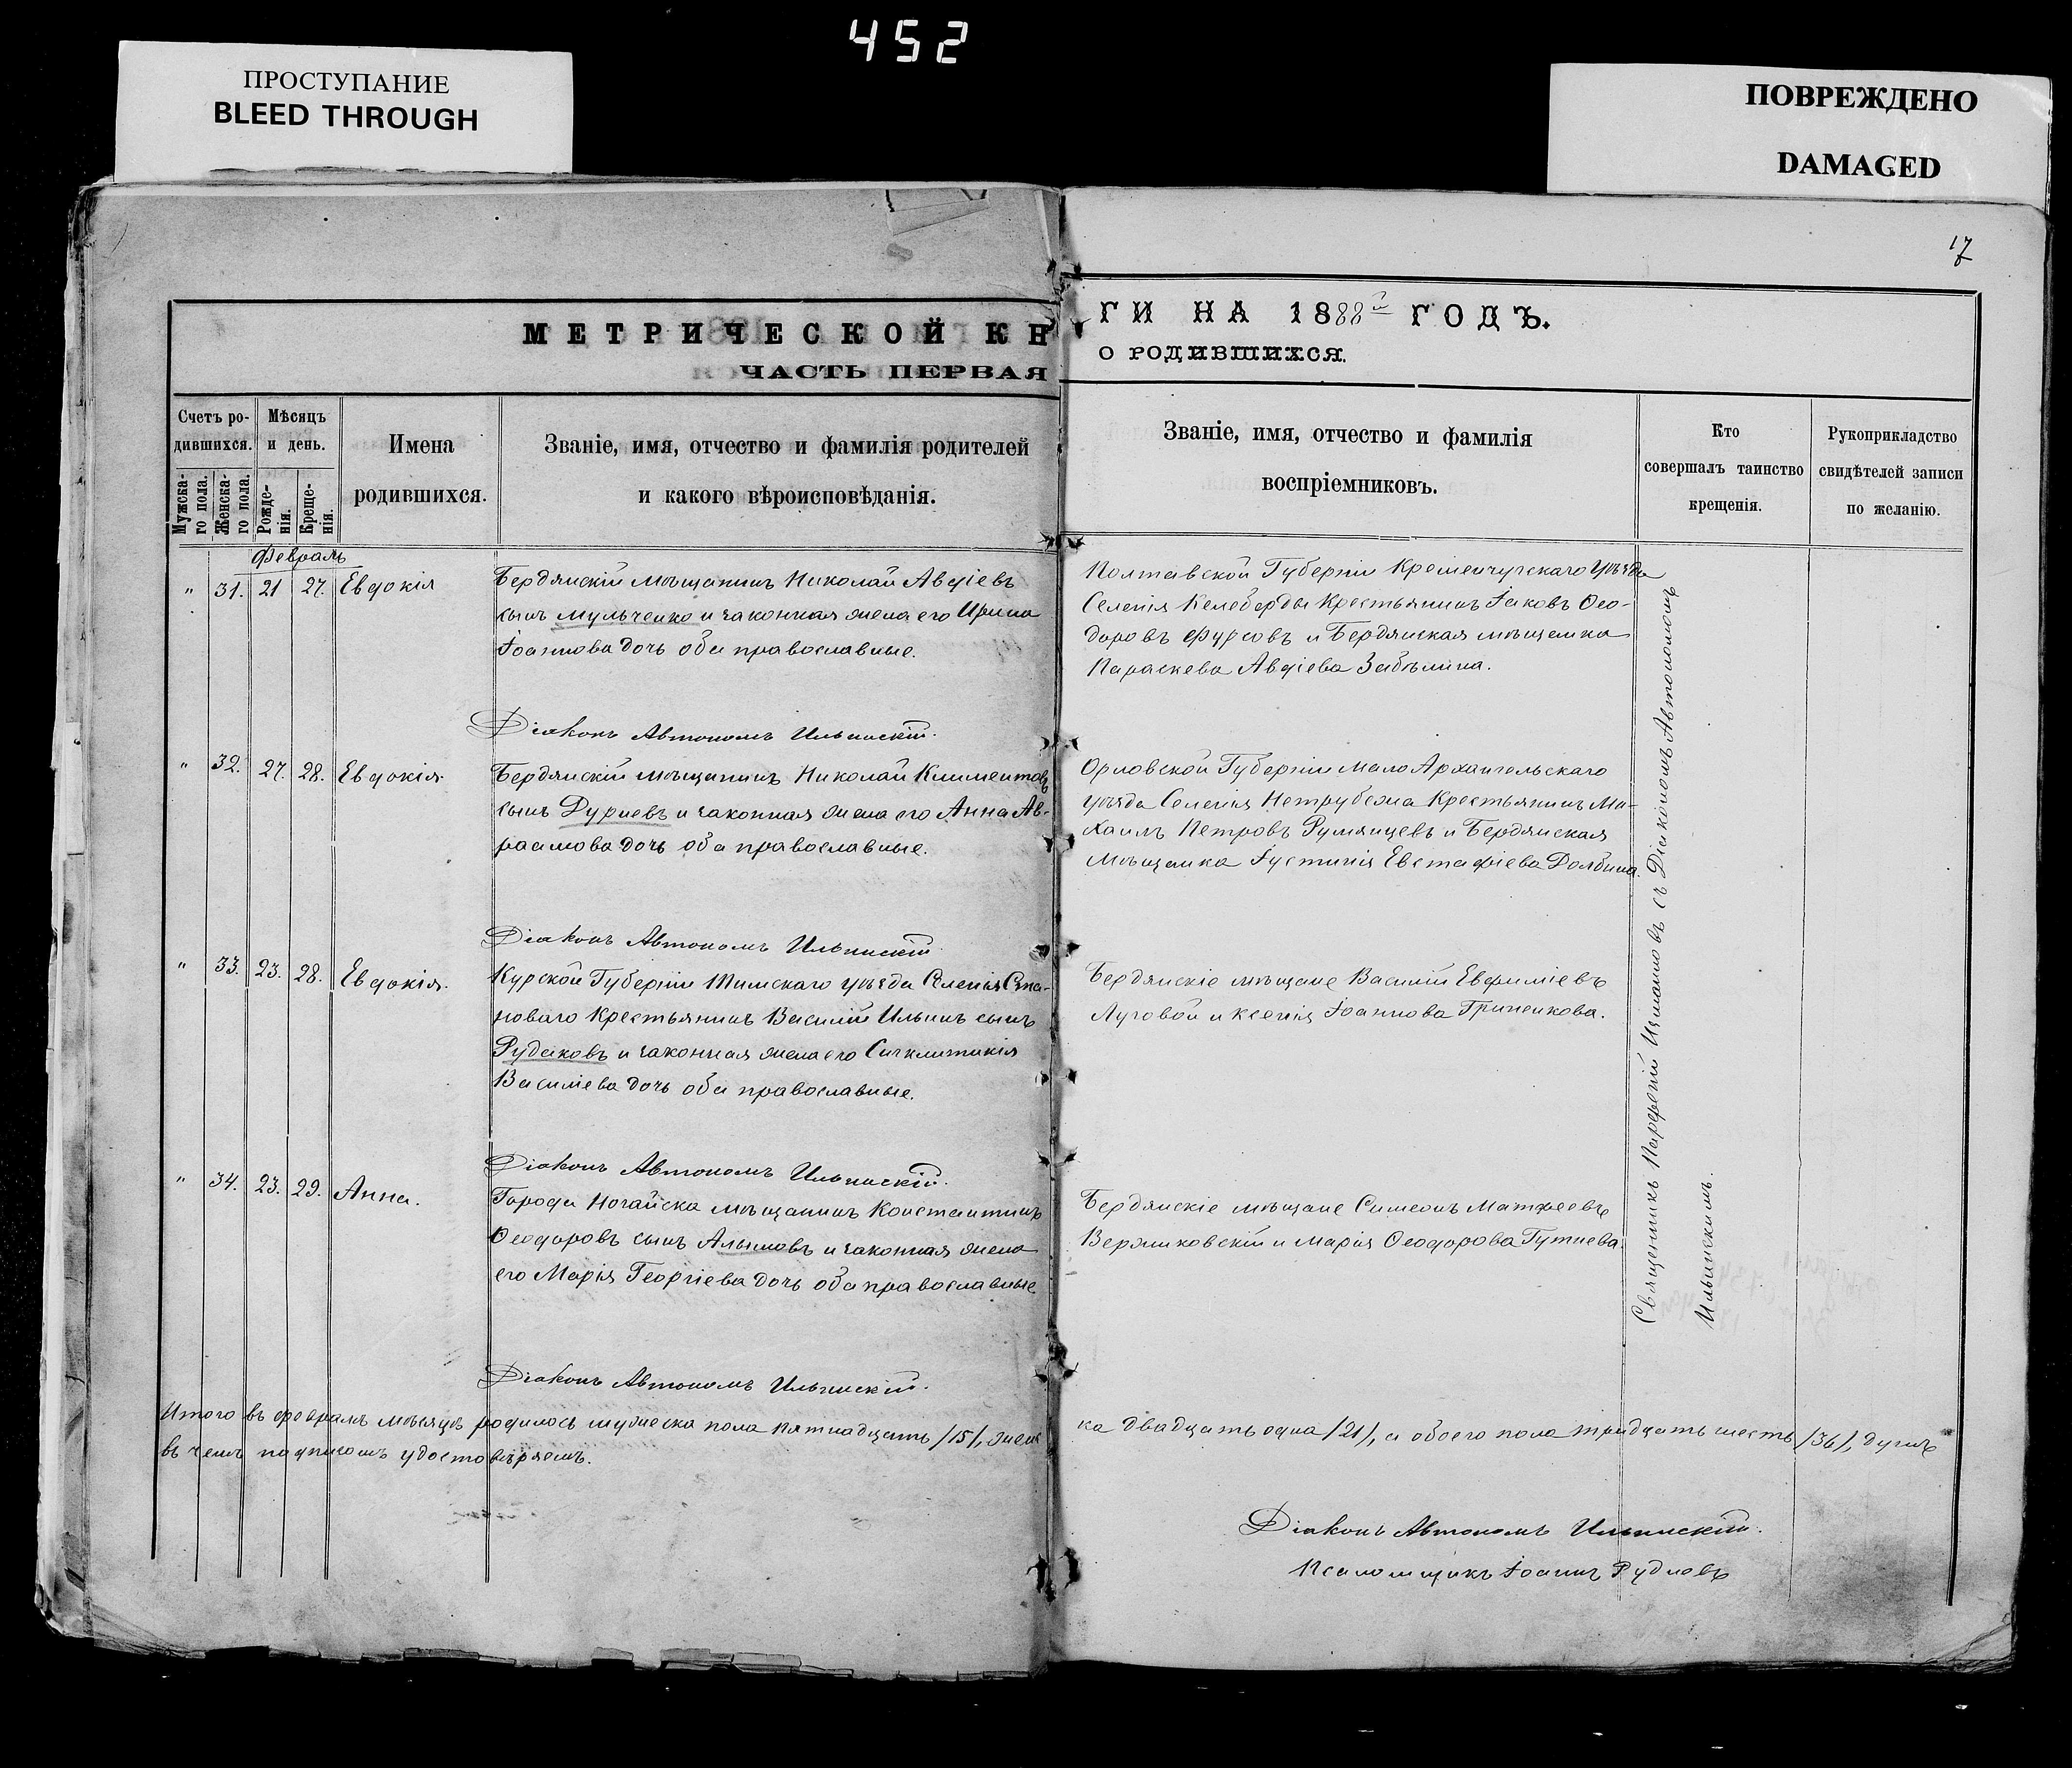 452
ПРОСТУПАНИЕ
BLEED THROUGH
ПОВРЕЖДЕНО
DAMAGED
17
МЕТРИЧЕСКОЙ КН
ЧАСТЬ ПЕРВАЯ
ГИ НА 1888й ГОДЪ.
О РОДИВШИХСЯ.
Счетъ ро-
дившихся.
Мужска-
го пола.
Женска-
го пола.
Мѣсяцъ
и день.
Рожде-
нія.
Креще-
нія.
Имена
родившихся.
Званіе, имя, отчество и фамилія родителей
и какого вѣроисповѣданія.
Званіе, имя, отчество и фамилія
воспріемниковъ.
Кто
совершалъ таинство
крещенія.
Рукоприкладство
свидѣтелей записи
по желанію.
Февраль
" 31. 21 27. Евдокія
Бердянскій мѣщанинъ Николай Авдіевъ
сынъ Мульченко и законная жена его Ирина
Іоаннова дочь оба православные.
Полтавской Губерніи Кременчугскаго Уѣзда
Селенія Келеберды Крестьянинъ Іаковъ Ѳео-
доровъ Фурсовъ и Бердянская мѣщанка
Параскева Авдіева Забѣлина.
Діаконъ Автономъ Ильинскій.
" 32. 27. 28. Евдокія.
Бердянскій мѣщанинъ Николай Климентовъ
сынъ Дурневъ и законная жена его Анна Ав-
раамова дочь оба православные.
Орловской Губерніи Мало Архангельскаго
уѣзда Селенія Крестьянинъ Ми-
хаилъ Петровъ Румянцевъ и Бердянская
мѣщанка Іустинія Евстафіева Долбина.
Діаконъ Автономъ Ильинскій.
" 33. 23. 28. Евдокія.
Курской Губерніи Тимскаго уѣзда Селенія Ста-
новаго Крестьянинъ Василій Ильинъ сынъ
Рудаковъ и законная жена его Сигклитикія
Василіева дочь оба православные.
Бердянскіе мѣщане Василій Евфиміевъ
Луговой и Ксенія Іоаннова Гриненкова.
Діаконъ Автономъ Ильинскій.
" 34. 23. 29. Анна.
Города Ногайска мѣщанинъ Константинъ
Ѳеодоровъ сынъ Алымовъ и законная жена
его Марія Георгіева дочь оба православные
Бердянскіе мѣщане Симеонъ Матѳеевъ
Вержиковскій и Марія Ѳеодорова Гутнева.
Діаконъ Автономъ Ильинскій.
Священникъ Измаиловъ съ Діакономъ Автономомъ
Ильинскимъ.
Итого въ февралѣ мѣсяцѣ родилось мужеска пола пятнадцать /15/, женс
ка двадцать одна /21/, а обоего пола тридцать шесть /36/, душъ
въ чемъ подписомъ удостовѣряемъ.
Діаконъ Автономъ Ильинскій.
Псаломщикъ Іоаннъ Рудневъ